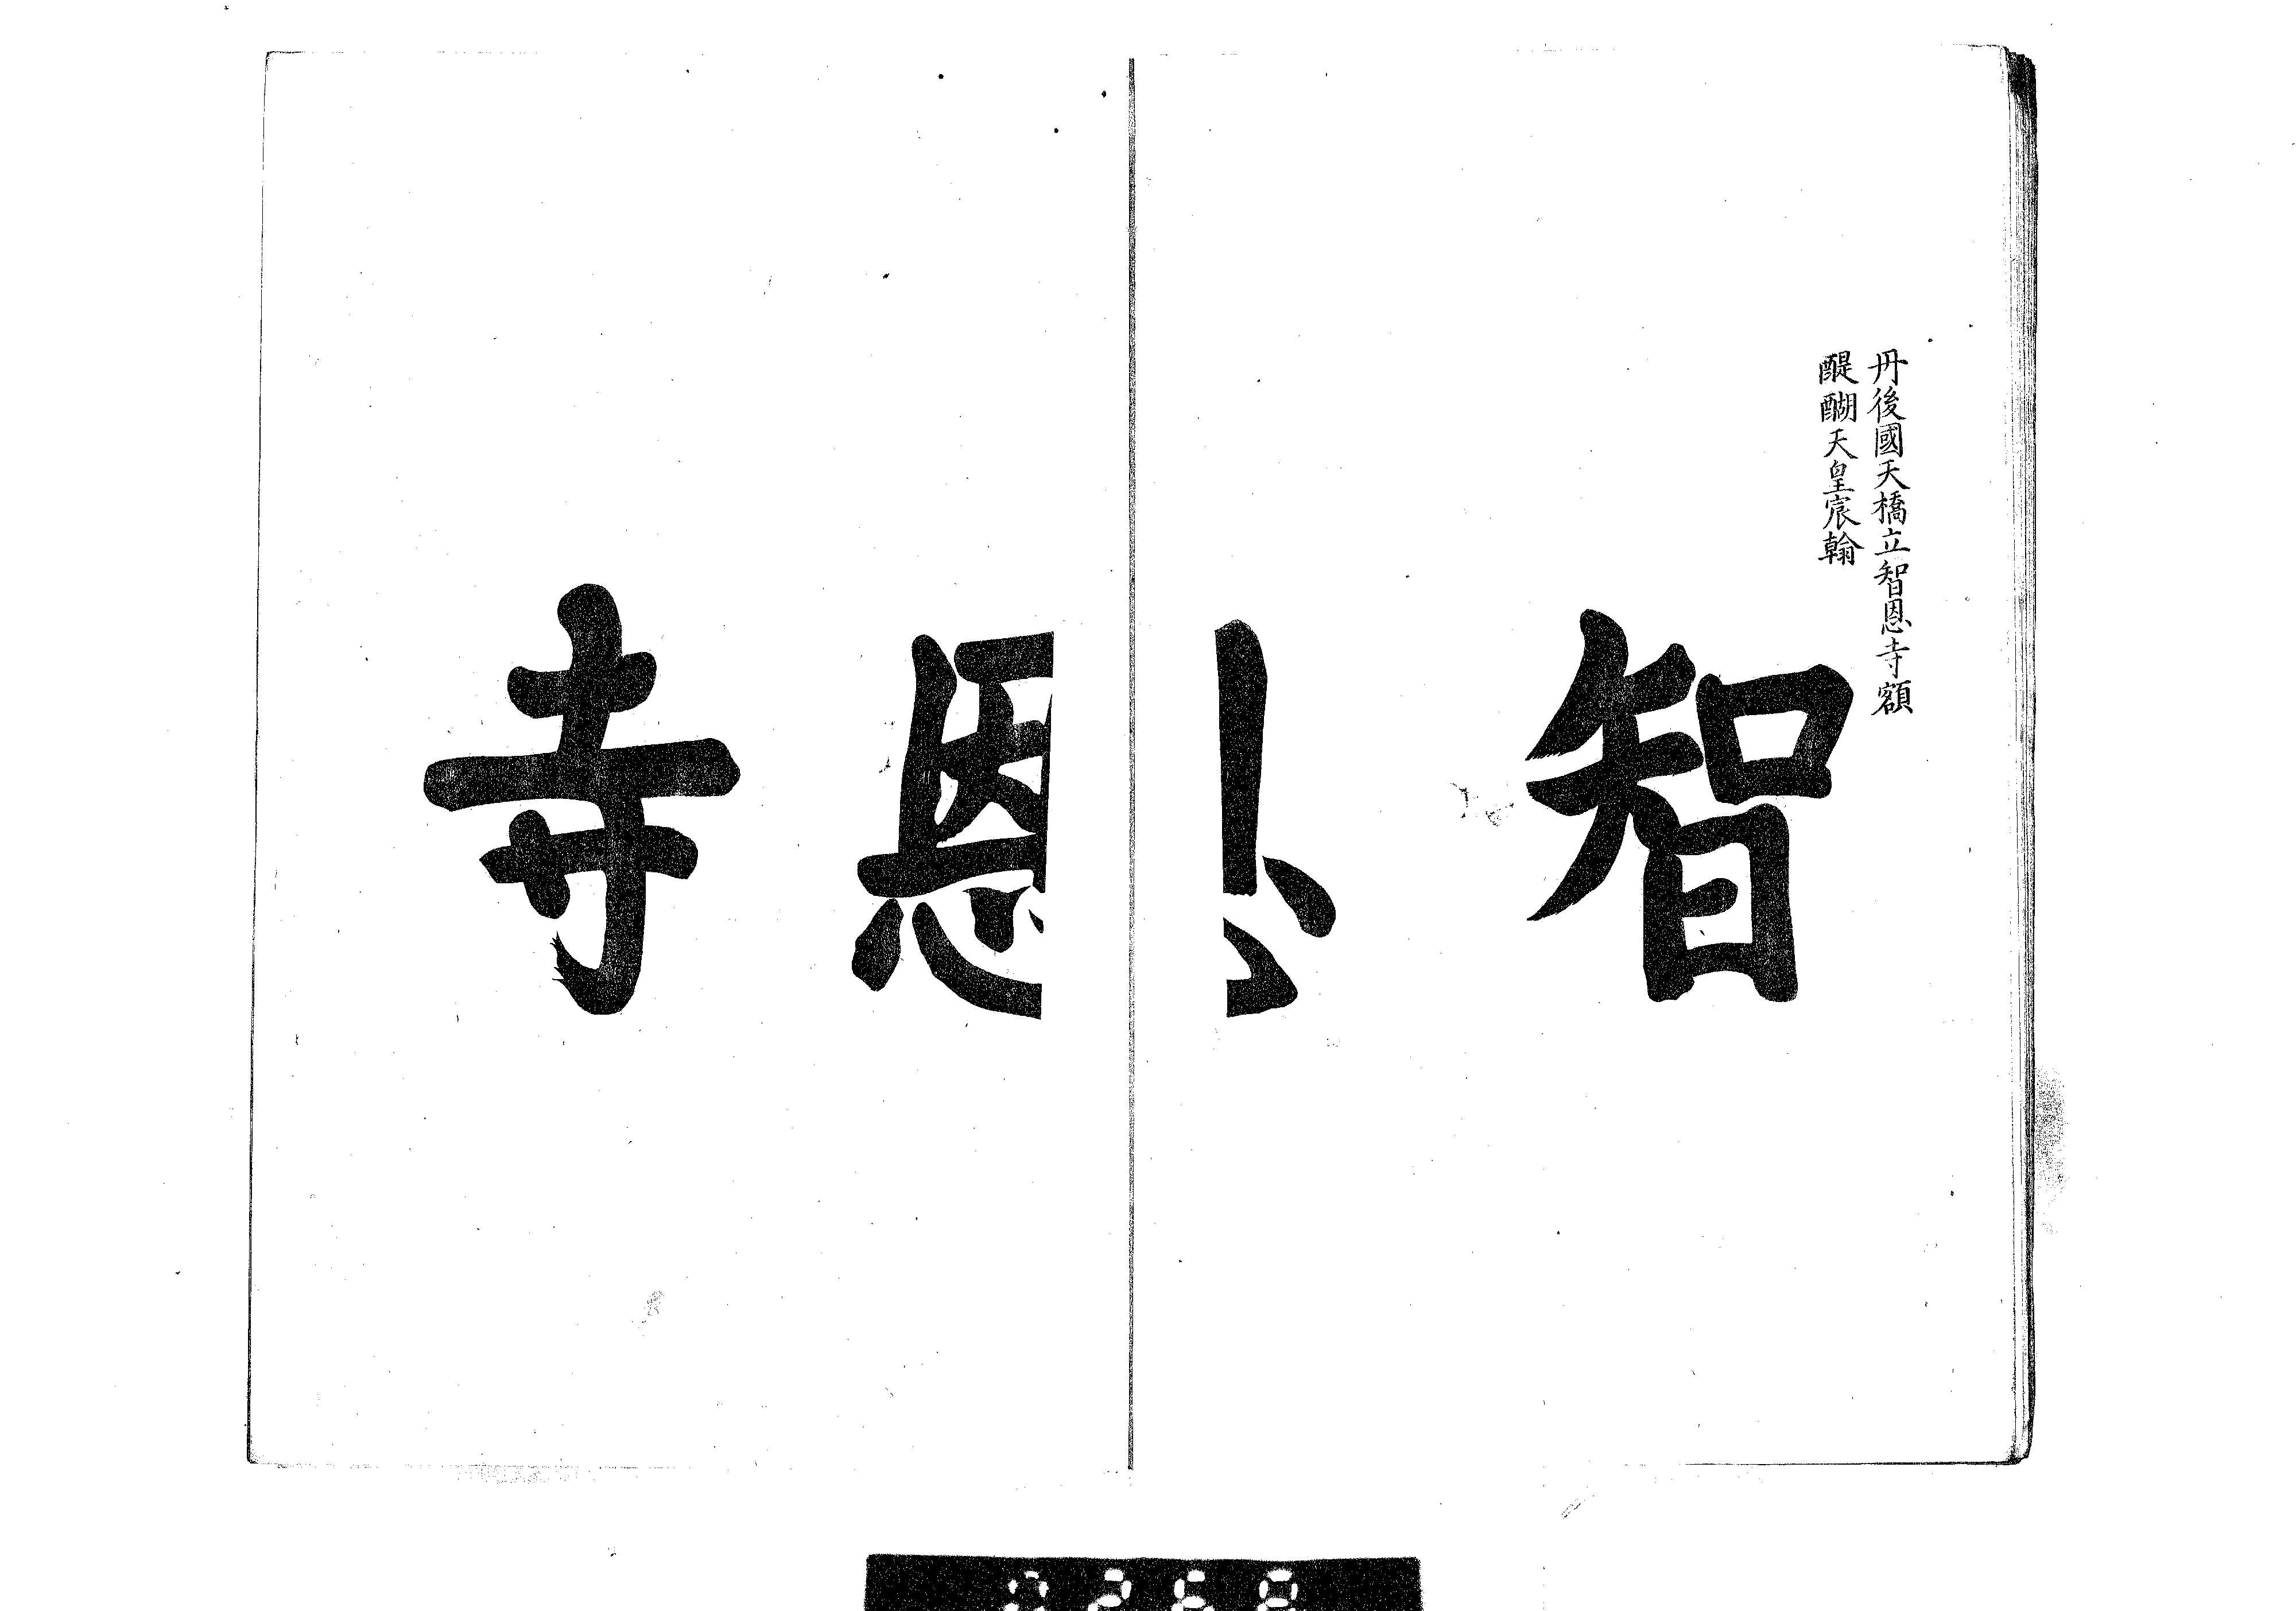 丹後國天橋立智恩寺額
醍醐天皇宸翰
智恩寺